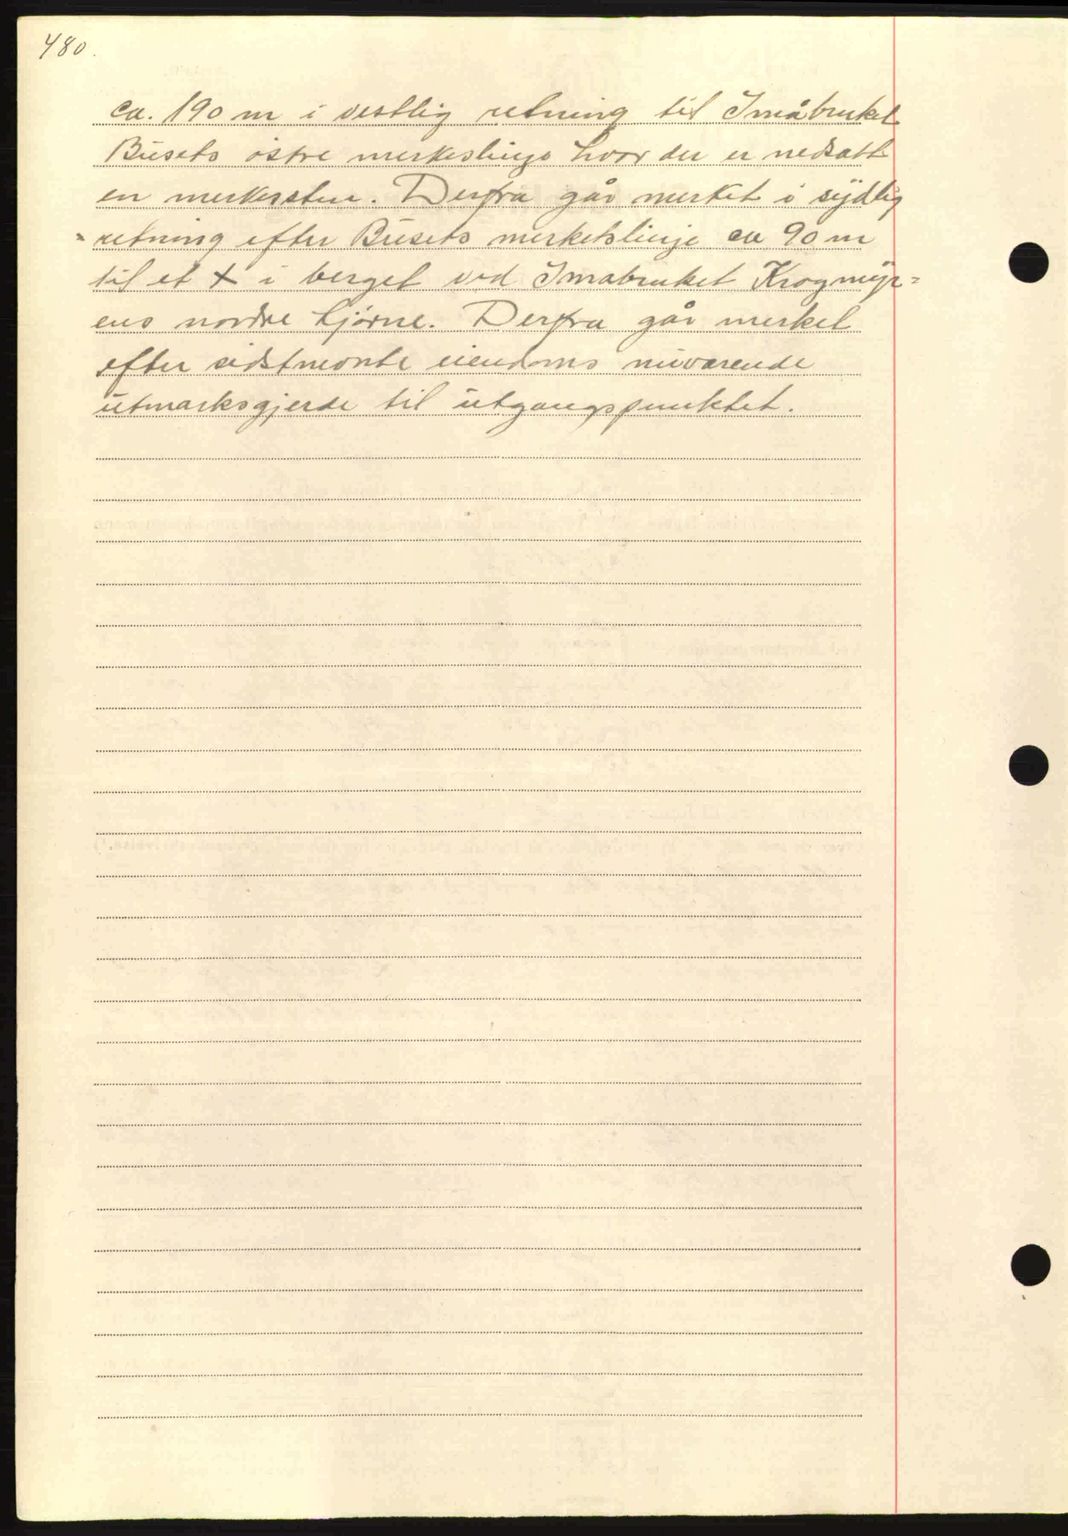 480.
ca. 190 m i vestlig retning til Småbruket
Busets østre merkeslinje hvor der er nedsatt
en merkessten. Derfra går merket i sydlig
retning efter Busets merkelslinje ca 90 m
til et X i berget ved Småbruket Krogmyr=
ens nordre hjørne. Derfra går merket
efter sidstnevnte eiendoms nuværende
utmarksgjerde til utgangspunktet.